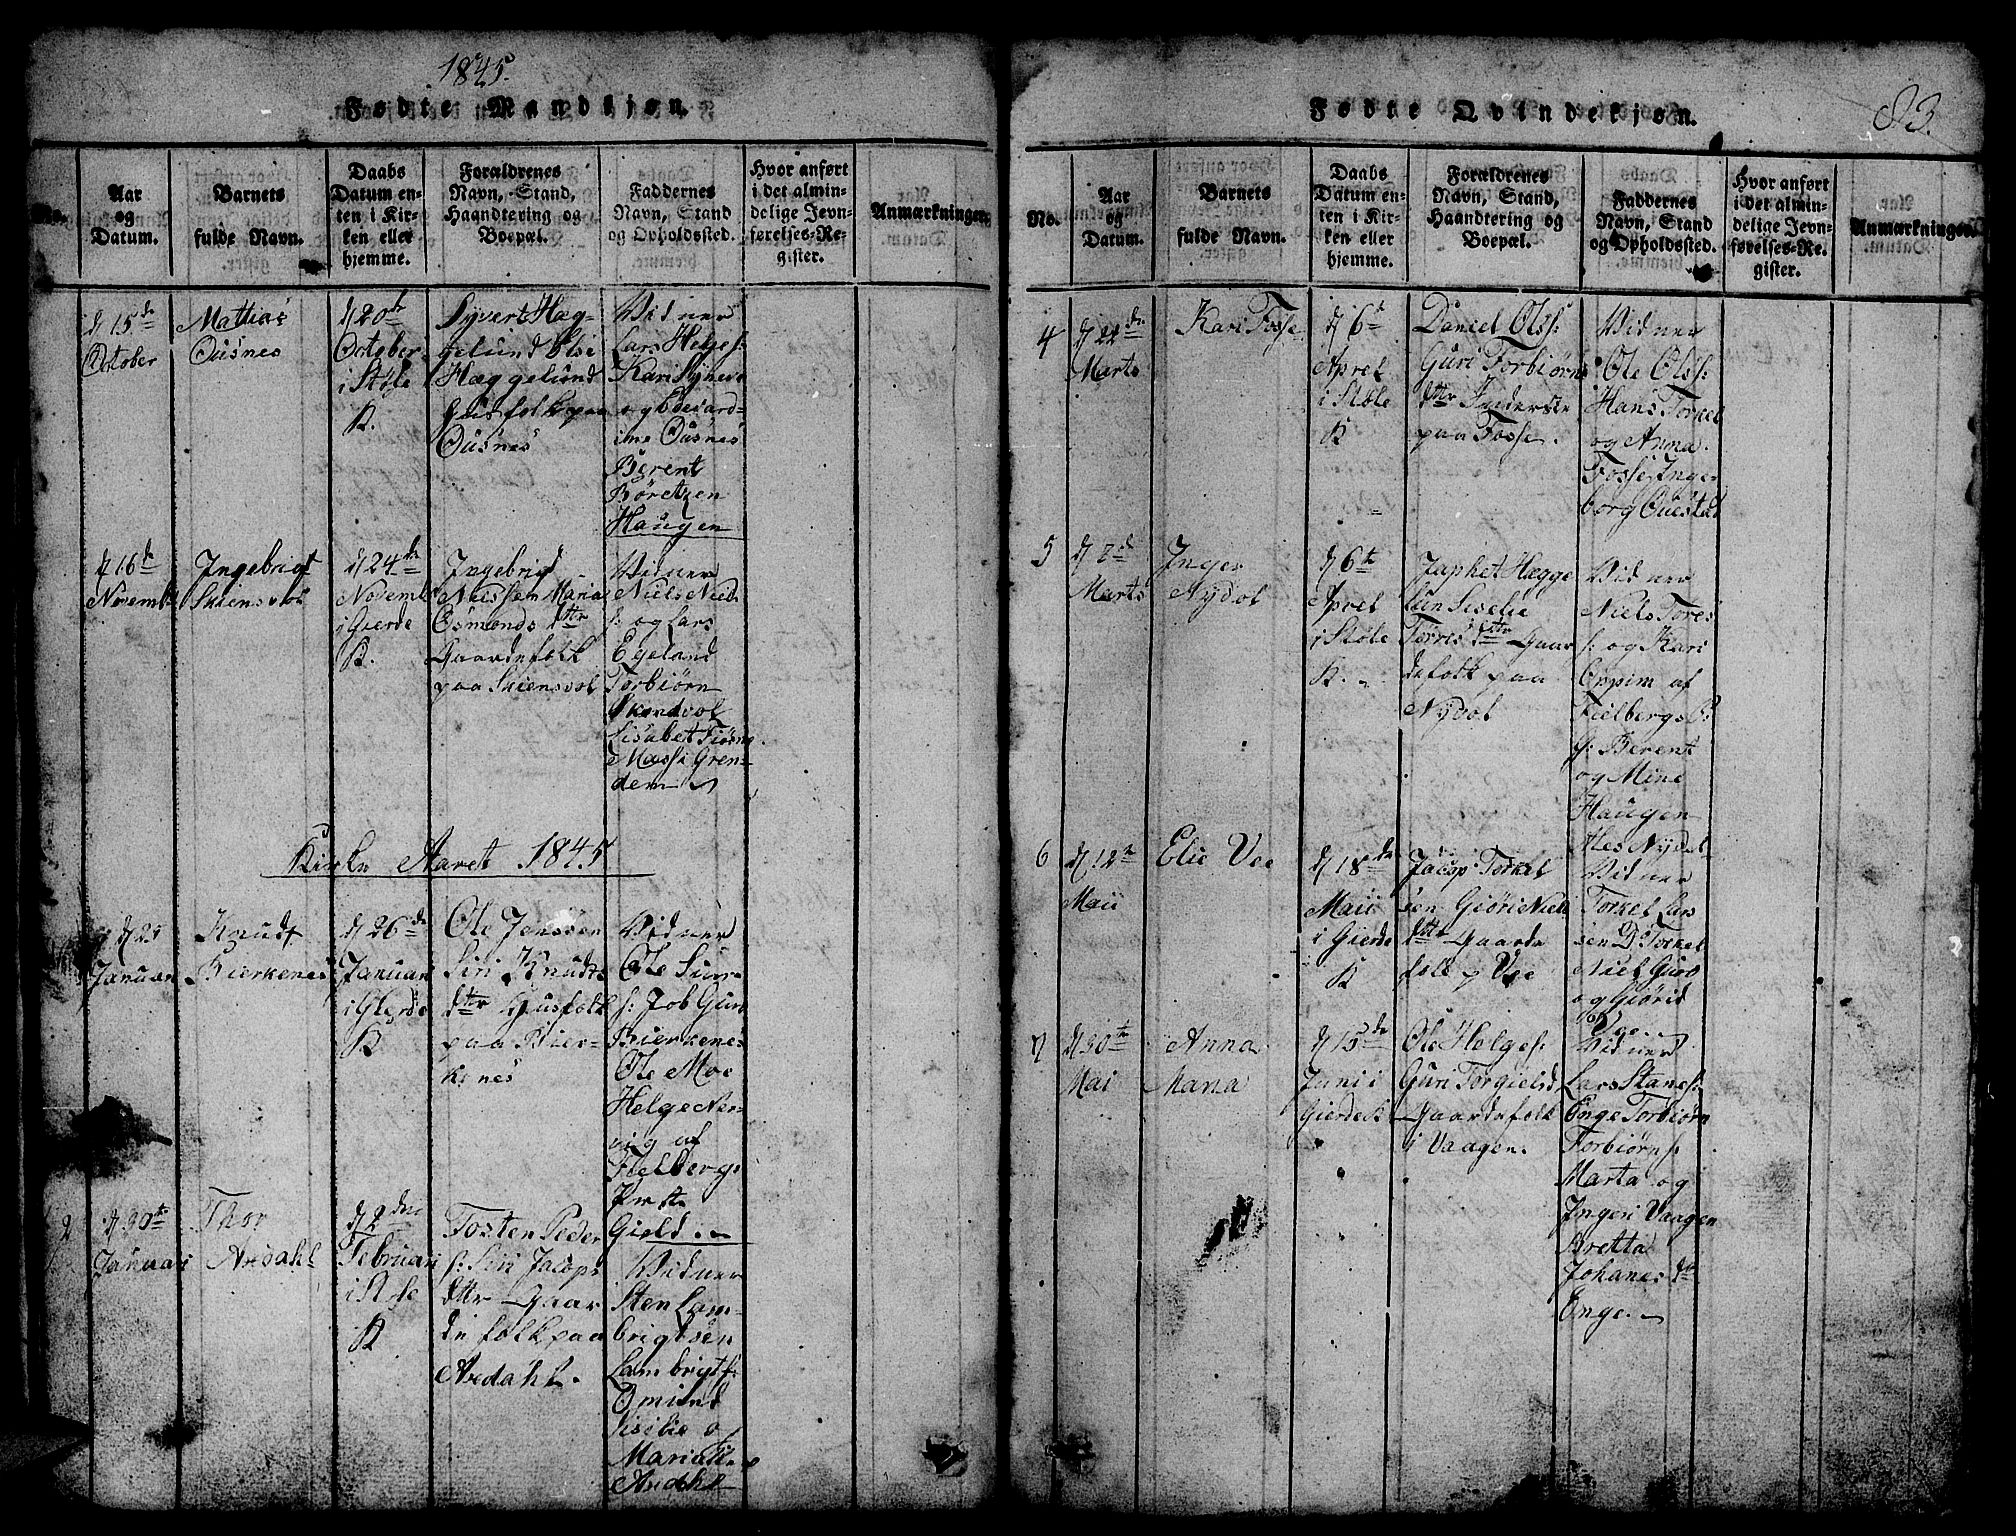 1845.
Fødte Mandkjøn.
Aar og Datum.
Barnets fulde Navn.
Daabs Datum enten i Kirken eller hjemme.
Forældrenes Navn, Stand, Haandtering og Boepæl.
Faddernes Navn, Stand og Opholdssted.
Hvor anført i det almindelige Jevnførelses-Register.
Anmærkninger.
d 15de
October
Mattias
Øusnes
d 20de
October
i Støle
K.
Syvert Hæg-
gelund Elsi
Hæggelund
Husfolk paa
Øusnes
Vidner
Lars Helges:
Kari
og Edevard-
ine Øusnes
Berent
Børetzen
Haugen
d 16de
Novemb
Ingebrigt
Skiensvol
d 24de
Novemb
i Gierde
K.
Ingebrigt
Maria
Osmonds dttr
Gaardefolk
paa Skiensvol
Vidner
Niels Nield
s: og Lars
Egeland
Torbiørn
Skendvol
Lisabet
Massi Gren-
dem
Kirke Aaret 1845
d 25
Januari
Knudt
Bierkenes
d 26de
Januari
i Gierde
K
Ole Jenssen
Siri Knudts
dttr Husfolk
paa Bier-
kenes
Vidner
Ole Siur
s: Job Guro
Bierkenes
Ole Moe
Helge Ner-
vig af
Fielberg
Præste
Gield.
2
d 30te
Januari
Thor
Ardahl
d 2den
Februari
i
K
Tosten Peder
s: Siri Jacops
dttr Gaar
de folk paa
Aredahl.
Vidner
Sten Lam-
brigtsen
Lambrigt s:
Omund
Sisilie o
Maria
Ardahl
Fødte Qvindekjøn.
83.
No.
Aar og Datum.
Barnets fulde Navn.
Daabs Datum enten i Kirken eller hjemme.
Forældrenes Navn, Stand, Haandtering og Boepæl.
Faddernes Navn, Stand og Opholdssted.
Hvor anført i det almindelige Jevnførelses-Register.
Anmærkninger.
4
d 22de
Marts
Kari Fosse
d 6te
Aprel
i Støle
K
Daniel Olss:
Guri Torbiørns
dttr Inderste
paa Fosse.
Vidner
Ole Olss:
Hans Torkel
og Anna
Fosse Inger
borg Questad
5
Marts
Inger
Nydol
d 6te
Aprel
i Støle
K.
Japhet Hægge
lun Siselie
Torres dttr Gaar
defolk paa
Nydol
Vidner
Niels Tores
s: og Kari
af
Fielbergs P:
g: Berent
og Mine
Haugen
Ales Nydol
6
d 12te
Maii
Elie Vee
d 18de
Maii
i Gierde
K
Jacop Torkel
sen Giøri Niels
dttr Gaarde
folk p Vee
Vidner
Torkel Lars
sen Do Torkel
Niel Guro
og Giørid
Vee.
7
d 30te
Mai
Anna
Maria
d 15de
Juni i
Gierde K
Ole Helges:
Guri Torgielsd
Gaardefolk
i Vaagen.
Vidner
Lars Stanes:
Enge Torbiørn
Torbiørns:
Marta og
Ingeri Vaagen
Bretta
Johanes dtr
Enge.